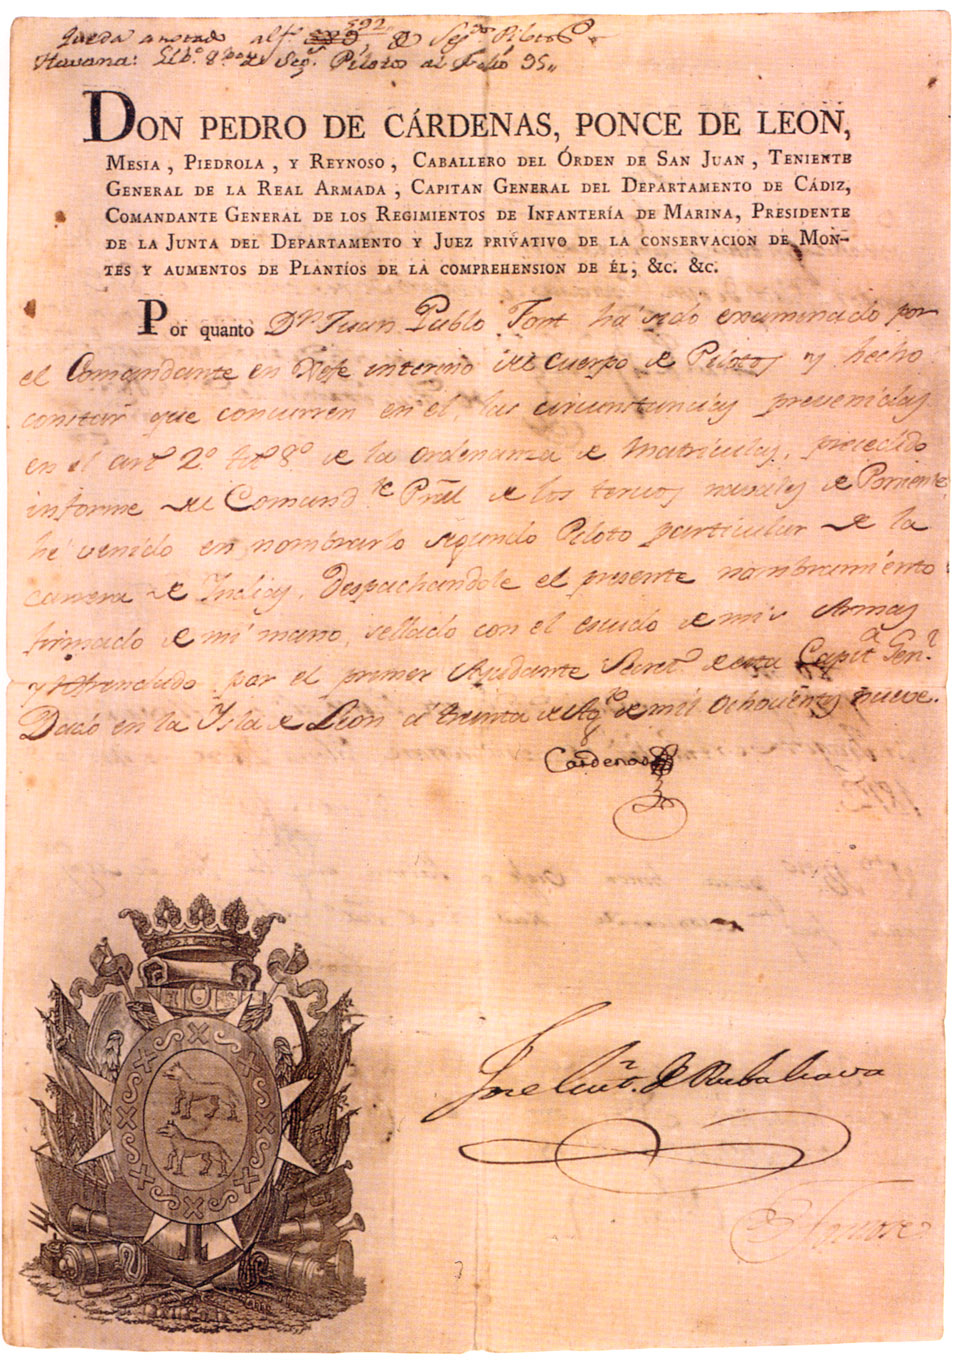 Queda anotado al f.º 592, de Seg.dos Pilotos
Havana: Lib.º 8.º de Seg.s Pilotos al folio 95,,
DON PEDRO DE CÁRDENAS, PONCE DE LEON,
MESIA, PIEDROLA, Y REYNOSO, CABALLERO DEL ÓRDEN DE SAN JUAN, TENIENTE
GENERAL DE LA REAL ARMADA, CAPITAN GENERAL DEL DEPARTAMENTO DE CÁDIZ,
COMANDANTE GENERAL DE LOS REGIMIENTOS DE INFANTERÍA DE MARINA, PRESIDENTE
DE LA JUNTA DEL DEPARTAMENTO Y JUEZ PRIVATIVO DE LA CONSERVACION DE MON-
TES Y AUMENTOS DE PLANTÍOS DE LA COMPREHENSION DE ÉL, &c. &c.
Por quanto Dn. Juan Pablo Fort ha sido examinado por
el Comandante en Xefe interino del Cuerpo de Pilotos y hecho
constar que concurren en el, las circunstancias prevenidas
en el artº 2º titº 8º de la ordenanza de Matriculas, precedido
informe del Comandte Pral de los tercios navales de Poniente
he venido en nombrarlo segundo Piloto particular de la
carrera de Indias, Despachandole el presente nombramiento
firmado de mi mano, sellado con el escudo de mis Armas
y refrendado por el primer Ayudante Secretº de esta Capita Genl
Dado en la Isla de Leon á treinta de Agto de mil ochocientos nueve.
Cardenas
Jose de Rubalcava